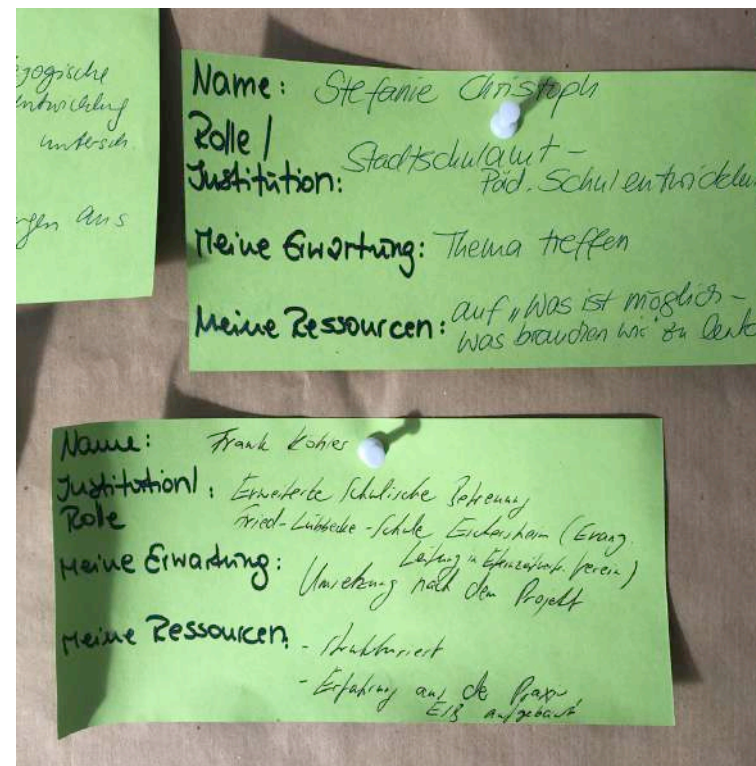 gogische
entwicklung
untersch.
gen aus
Name: Stefanie Christoph
Rolle /
Institution: Stadtschulamt -
Päd. Schulentwicklun
Meine Erwartung: Thema treffen
Meine Ressourcen: auf „Was ist möglich -
was brauchen wir zu
Name: Frank
Institution/ : Erweiterte Schulische Betreuung
Rolle Fried-Lübbecke-Schule (Evang.
Leitung in Verein)
Meine Erwartung: Umsetzung nach dem Projekt
Meine Ressourcen: - strukturiert
- Erfahrung aus de Praxis
ESB aufgebaut